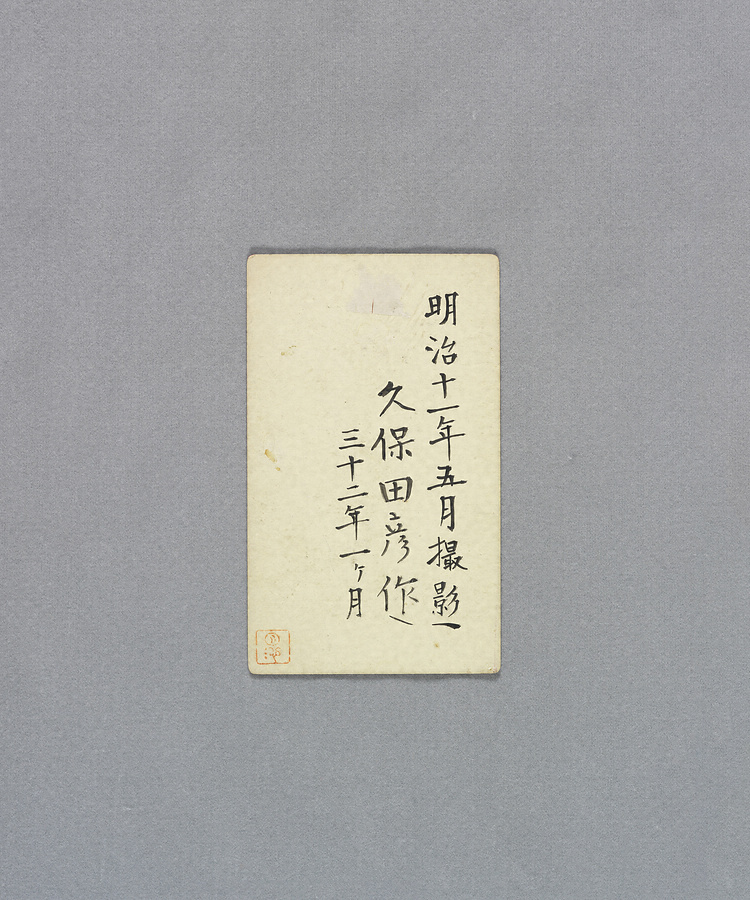 明治十一年五月撮影
久保田彦作
三十二年一ヶ月